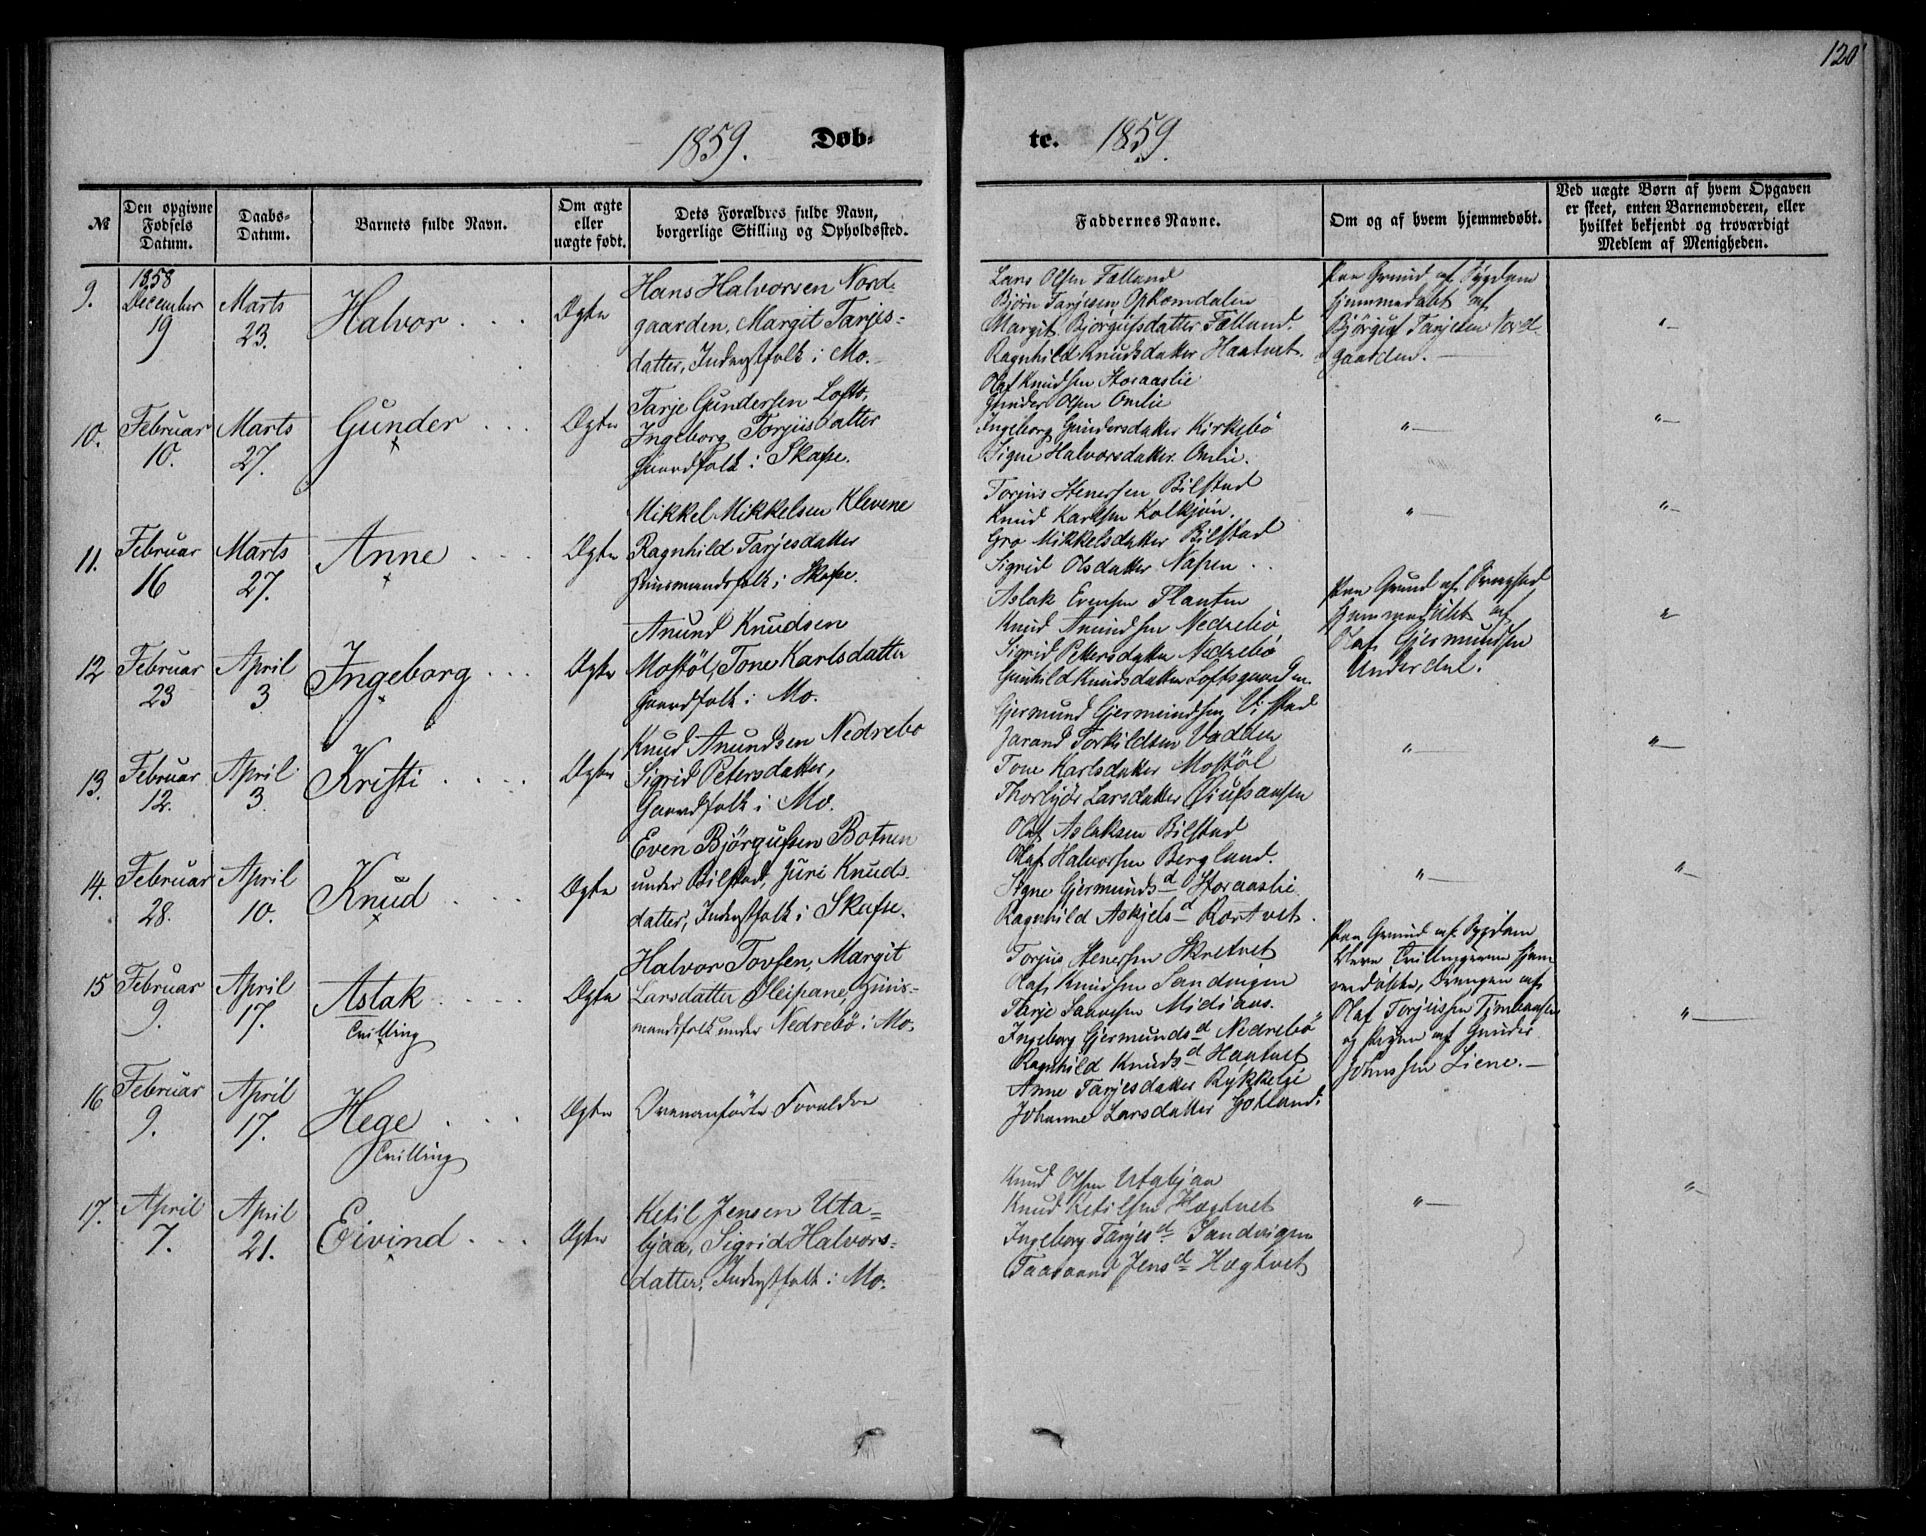 120
1859. Døb-
te. 1859.
№
Den opgivne
Fødsels
Datum.
Daabs-
Datum.
Barnets fulde Navn.
Om ægte
eller
uægte født.
Dets Forældres fulde Navn,
borgerlige Stilling og Opholdssted.
Faddernes Navne.
Om og af hvem hjemmedøbt.
Ved uægte Børn af hvem Opgaven
er skeet, enten Barnemoderen, eller
hvilket bekjendt og troværdigt
Medlem af Menigheden.
9.
1858
December
19
Marts
23.
Halvor
Ægte
Hans Halvorsen Nord-
gaarden, Margit Tarjes-
datter, Inderstfolk i Mo.
Lars Olsen Falland
Bjørn Tarjesen Opkomdalen
Margit Bjørgufsdatter Falland.
Ragnhild Knudsdatter Haatvet.
Paa Grund af Sygdom
hjemmedøbt af
Bjørguf Tarjesen Nord-
gaarden.
"
10.
Februar
10.
Marts
27.
Gunder
×
Ægte
Tarje Gundersen Lofts,
Ingeborg Torjusdatter
Gaardfolk i Skafse.
Olaf Knudsen Storaaslie
Gunder Olsen Omlie
Ingeborg Gundersdatter Kirkebø
Signe Halvorsdatter Omlie.
"
"
11.
Februar
16
Marts
27.
Anne
×
Ægte
Mikkel Mikkelsen Klevene
Ragnhild Tarjesdatter
Huusmandsfolk i Skafse.
Torjus Stenersen Bilstad
Knud Karlsen Kolkjøn.
Gro Mikkelsdatter Bilstad
Sigrid Olsdatter Napen
"
"
12
Februar
23
April
3
Ingeborg
×
Ægte
Anund Knudsen
Mostøl, Tone Karlsdatter
Gaardfolk i Mo.
Aslak Evensen Flanten
Knud Anundsen Nedrebø
Sigrid Petersdatter Nedrebø
Gunhild Knudsdatter Loftsgaarden.
Paa Grund af Svaghed
hjemmedøbt af
Olaf Gjermundsen
Underdal.
"
13.
Februar
12.
April
3
Kristi
Ægte
Knud Anundsen Nedrebø
Sigrid Petersdatter,
Gaardfolk i Mo.
Gjermund Gjermundsen Vistad
Jarand Torkildsen Vadden
Tone Karlsdatter Mostøl
Thorbjør Larsdatter
"
"
14.
Februar
28.
April
10.
Knud
×
Ægte
Even Bjørgufsen Botnen
under Bilstad, Juri Knuds-
datter, Inderstfolk i Skafse.
Olaf Aslaksen Bilstad
Olaf Halvorsen Bergland.
Signe Gjermundsd Storaaslie.
Ragnhild Askjelsd Rortvet.
"
"
15
Februar
9.
April
17.
Aslak
Tvilling
Ægte
Halvor Tovsen, Margit
Larsdatter Sleipane, Huus-
mandsfolk under Nedrebø i Mo.
Torjus Stenersen Skretvet
Olaf Knudsen Sandvigen
Tarje Saavesen Midians.
Ingeborg Gjermundsd Nedrebø
Ragnhild Knudsd Haatvet
Anne Tarjesdatter Rykkelie
Johanne Larsdatter Gotland.
Paa Grund af Sygdom
bleve Tvillingerne hjem
medøbte, Drengen af
Olaf Torjussen Tjønbaasen
og Pigen af Gunder
Johnssen Liene.
"
16
Februar
9.
April
17.
Hege
Tvilling
Ægte
Ovenanførte Forældre
17.
April
7.
April
21.
Eivind
×
Ægte
Ketil Jensen Uta-
bjaa, Sigrid Halvors-
datter, Inderstfolk i Mo.
Knud Olsen Utabjaa
Knud Ketilsen Hægtvet
Ingeborg Tarjesd Sandvigen
Taaraand Jensd Hægtvet
"
"